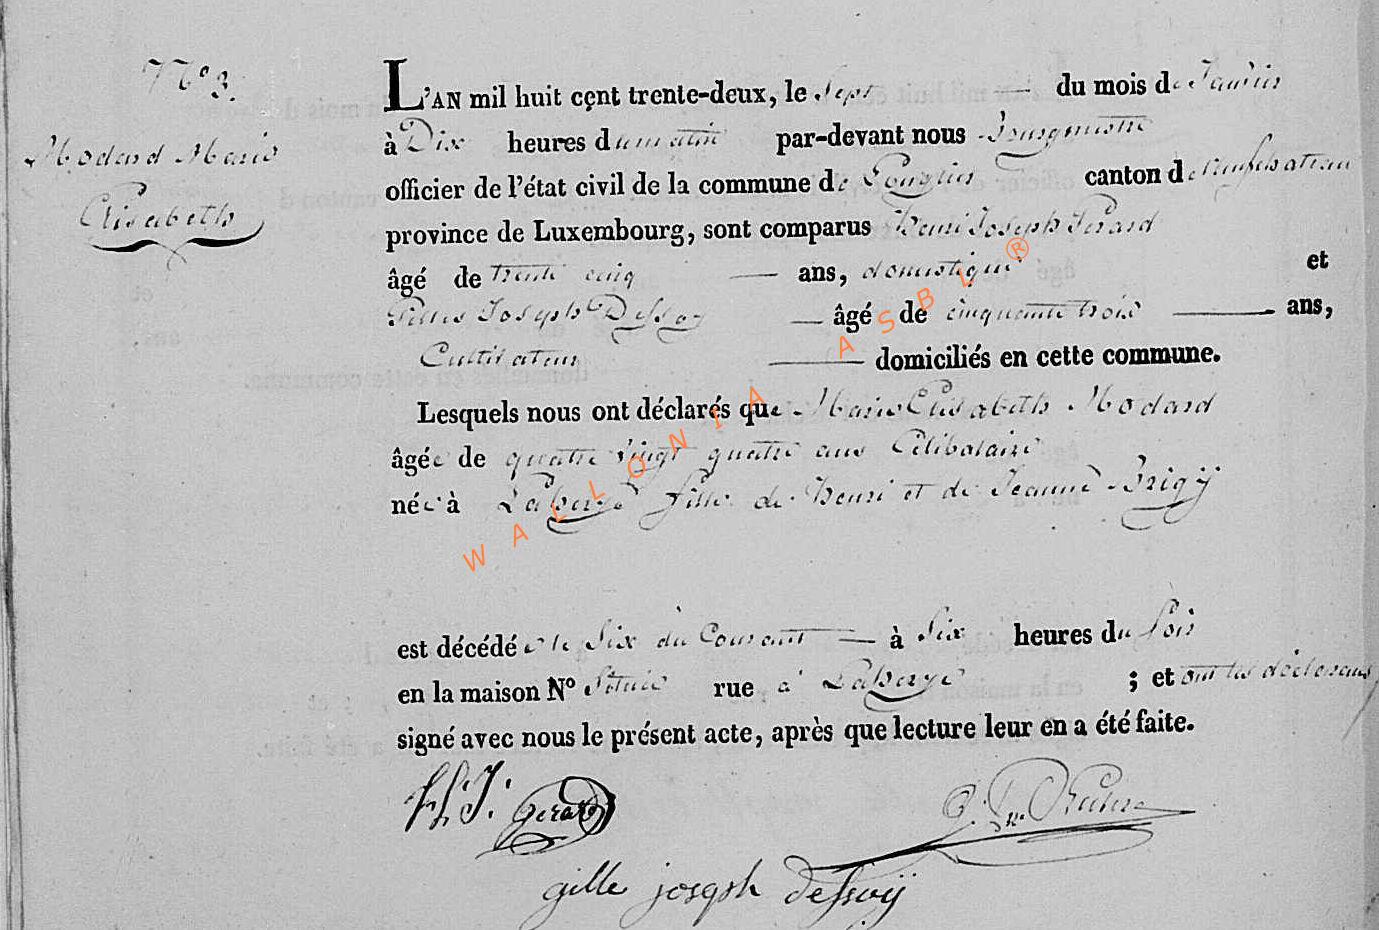 N° 3.
Modard Marie
Elisabeth
L'AN mil huit cent trente-deux, le Sept du mois de Janvier
à Dix heures du matin par-devant nous Bourgmestre
officier de l'état civil de la commune de canton de neufchateau
province de Luxembourg, sont comparus Henri Joseph Gérard
âgé de trente cinq ans, domestique et
Gilles Joseph Dessoy âgé de cinquante trois ans,
Cultivateur domiciliés en cette commune.
Lesquels nous ont déclarés que Marie Elisabeth Modard
âgée de quatre vingt quatre ans Célibataire
née à Laherie fille de Henri et de Jeanne Brigij
est décédée le Six du Courant à Six heures du Soir
en la maison N° Située rue à Laherie ; et ont les déclarans
signé avec nous le présent acte, après que lecture leur en a été faite.
H. J. Gerard
gille joseph dessoij
WALLONIA ASBL ®